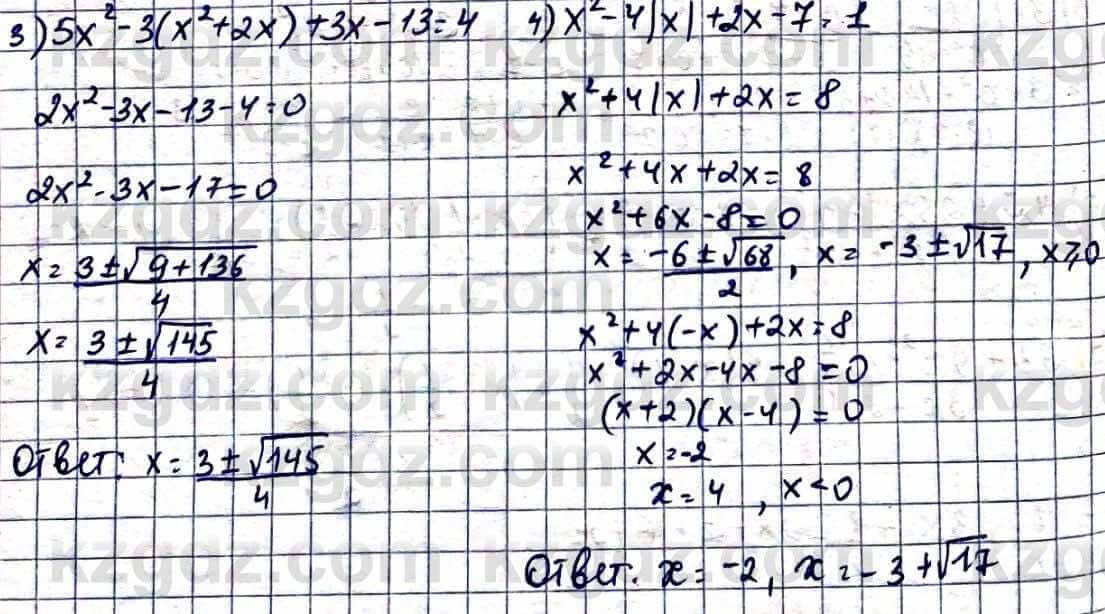 3) 5x² - 3(x² + 2x) + 3x - 13 = 4
2x² - 3x - 13 - 4 = 0
2x² - 3x - 17 = 0
x = (3 ± √(9 + 136))/4
x = (3 ± √145)/4
Ответ: x = (3 ± √145)/4
4) x² - 4|x| + 2x - 7 = 1
x² + 4|x| + 2x = 8
x² + 4x + 2x = 8
x² + 6x - 8 = 0
x = (-6 ± √68)/2, x = -3 ± √17, x ⩾ 0
x² + 4(-x) + 2x = 8
x² + 2x - 4x - 8 = 0
(x + 2)(x - 4) = 0
x = -2
x = 4, x < 0
Ответ. x = -2, x = -3 + √17
kzgdz.com